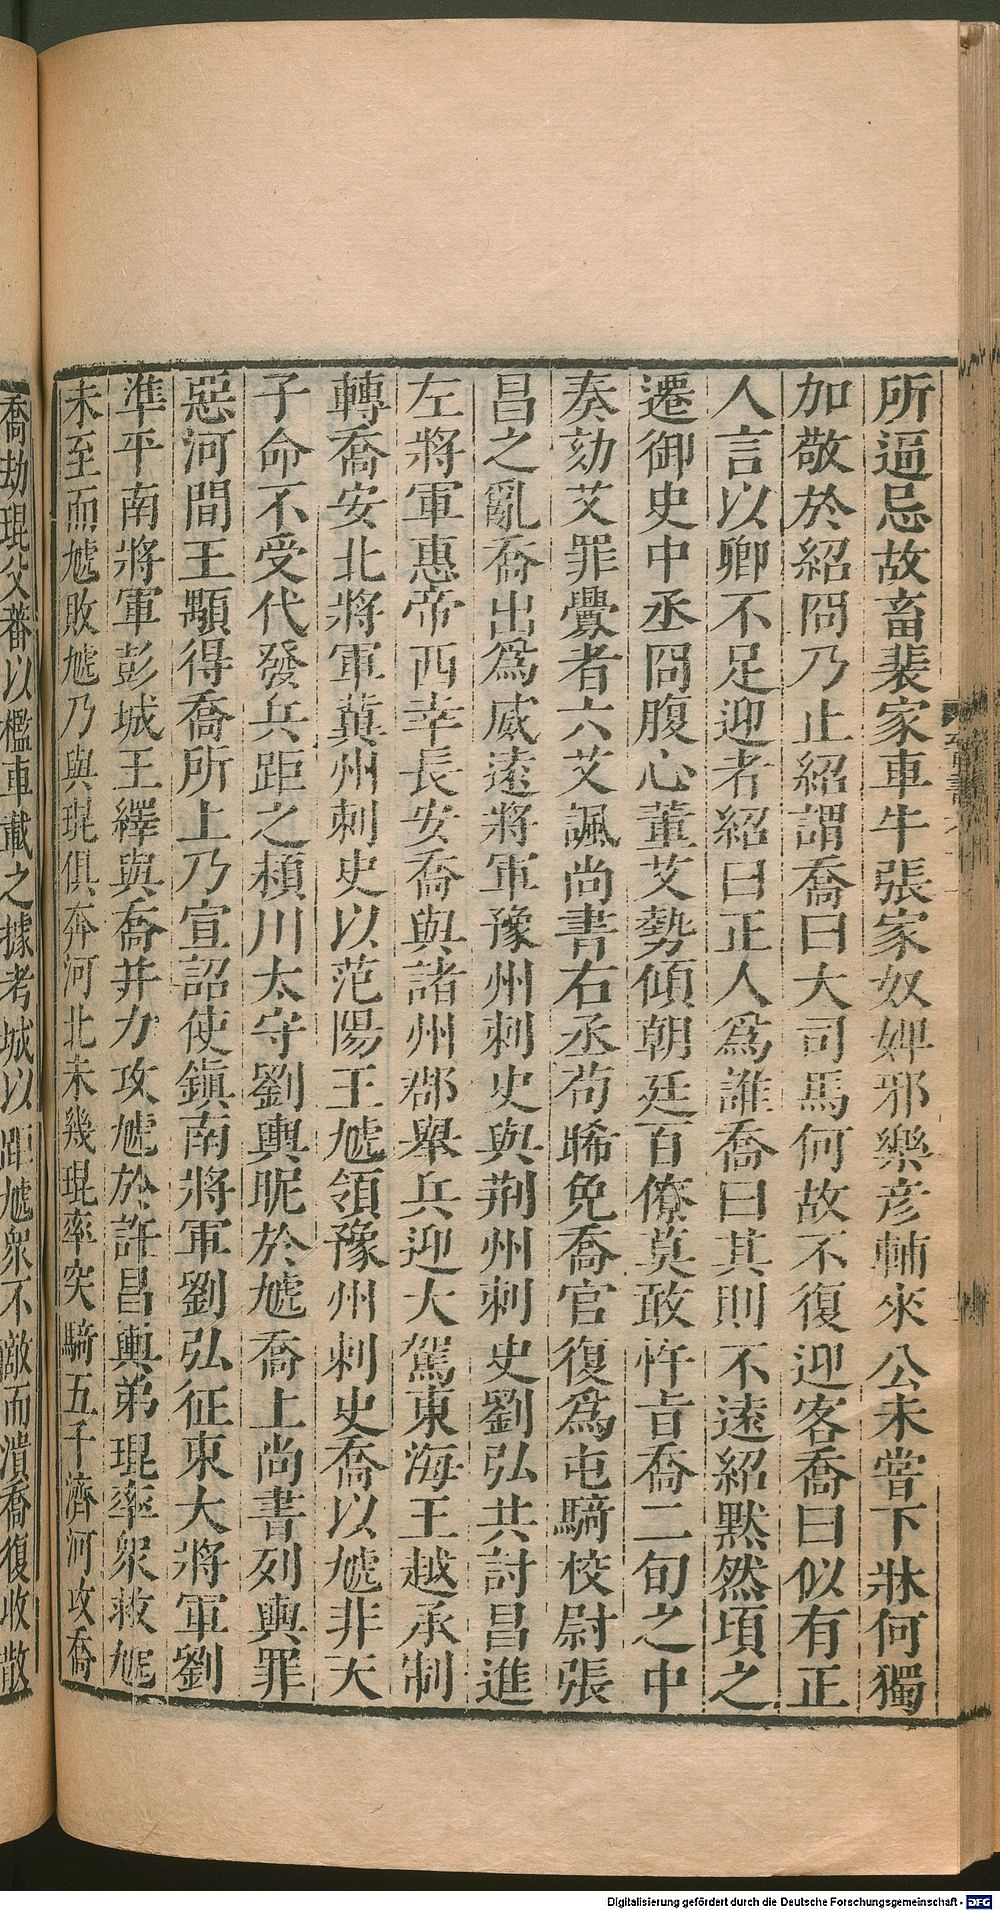 所逼忌故畜裴家車牛張家奴婢邪樂彦輔來公未嘗下牀何獨
加敬於紹冏乃止紹謂喬曰大司馬何故不復迎客喬曰似有正
人言以卿不足迎者紹曰正人爲誰喬曰其則不遠紹默然頃之
遷御史中丞冏腹心董艾勢傾朝廷百僚莫敢忤㫖喬二旬之中
奏劾艾罪釁者六艾諷尚書右丞苟晞免喬官復爲屯騎校尉張
昌之亂喬出爲威逺將軍豫州刺史與荆州刺史劉弘共討昌進
左將軍惠帝西幸長安喬與諸州郡舉兵迎大駕東海王越承制
轉喬安北將軍冀州刺史以范陽王虓領豫州刺史喬以虓非天
子命不受代發兵距之頴川太守劉輿昵於虓喬上尚書列輿罪
惡河間王顒得喬所上乃宣詔使鎭南將軍劉弘征東大將軍劉
準平南將軍彭城王繹與喬并力攻虓於許昌輿弟琨率衆救虓
未至而虓敗虓乃與琨俱奔河北未幾琨率突騎五千濟河攻喬
喬劫琨父蕃以檻車載之據考城以距虓衆不敵而潰喬復收散
Digitalisierung gefördert durch die Deutsche Forschungsgemeinschaft - DFG